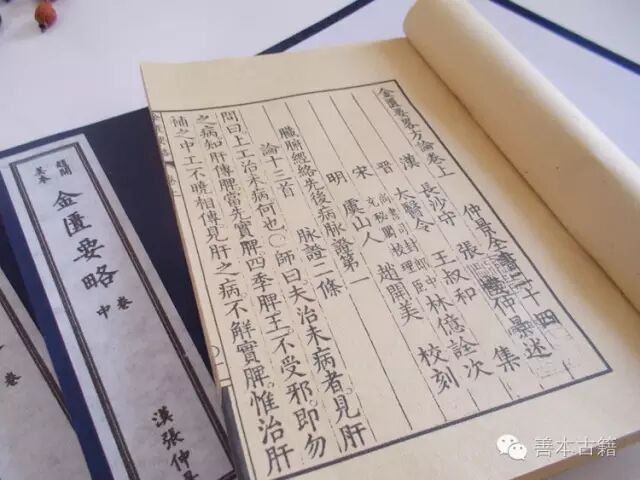 金匱要畧方論卷上
仲景全書二十四
漢 長沙守 張 機仲景述
晉 太醫令 王叔和 集
宋 尚書司封郎中
充秘閣校理臣 林億 詮次
明 虞山人 趙開美 校刻
臟腑經絡先後病脉證第一
論十三首 脉證二條
問曰上工治未病何也○師曰夫治未病者見肝
之病知肝傳脾當先實脾四季脾王不受邪即勿
補之中工不曉相傳見肝之病不解實脾惟治肝
金匱要略
中卷
漢張仲景
卷
善本古籍